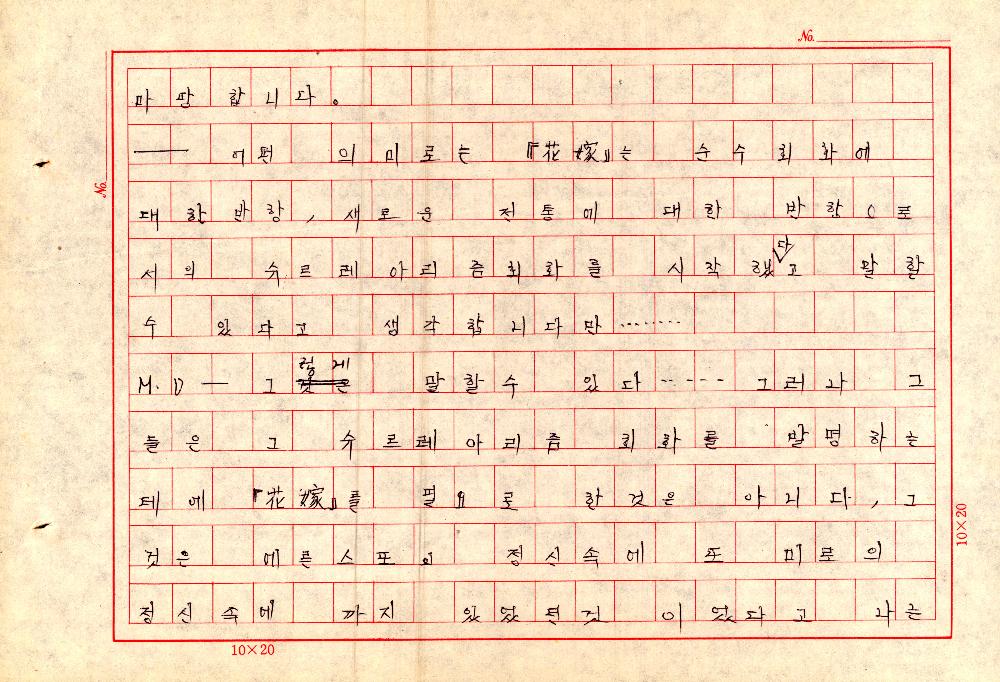 No.
마땅합니다。
── 어떤 의미로는 『花嫁』는 순수회화에
대한 반항, 새로운 전통에 대한 반항으로
서의 슈르레아리즘회화를 시작했다고 말할
수 있다고 생각합니다만‥‥‥‥
M.D ─ 그렇게 말할수 있다‥‥‥ 그러나 그
들은 그 슈르레아리즘 회화를 발명하는
데에 『花嫁』를 필요로 한것은 아니다, 그
것은 에른스트의 정신속에 또 미로의
정신속에 까지 있었던것 이었다고 나는
No.
10×20
10×20